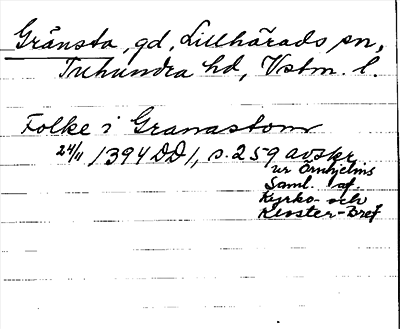 Gränsta, gd, Lillhärads sn,
Tuhundra hd, Vstm. l.
Folke i Granastom
24/11 1394 DD1, s. 259 avskr.
ur Örnhjelms
Saml. af
Kyrko- och
Kloster-Bref